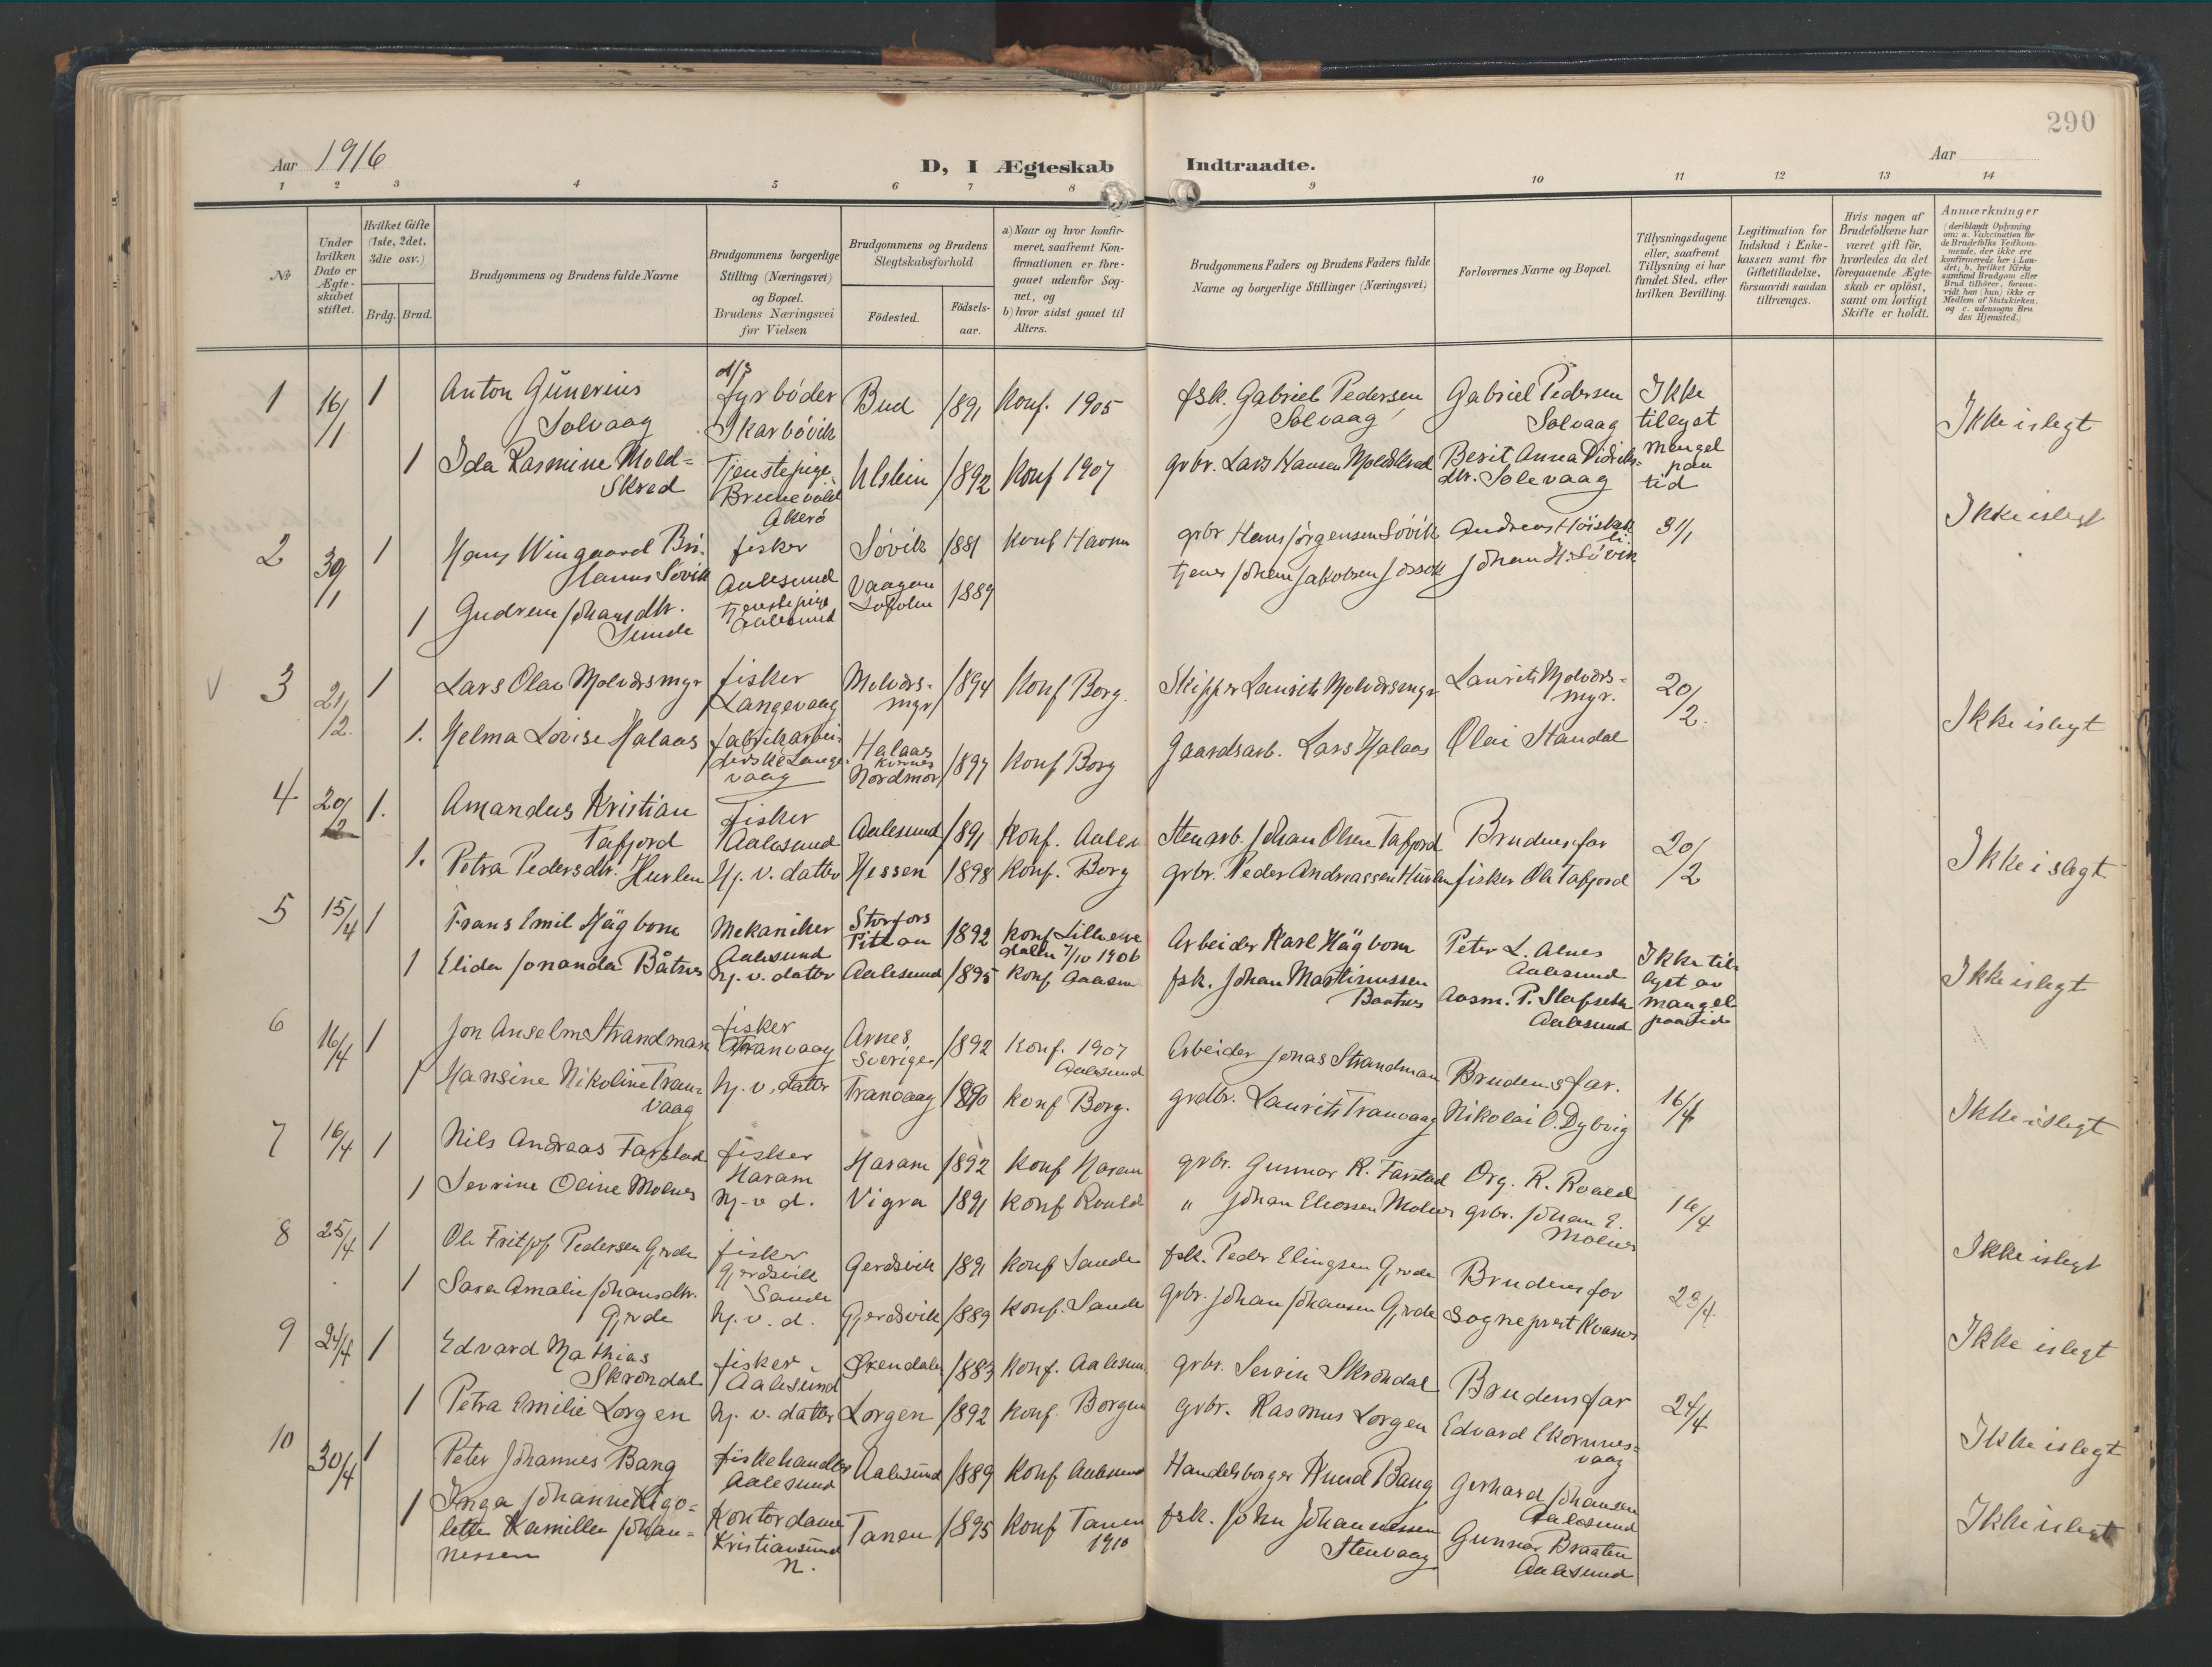 290
Aar 1916
D, I Ægteskab Indtraadte.
Aar
1 2 3 4 5 6 7 8 9 10 11 12 13 14
No
Under hvilken Dato er Ægteskabet stiftet.
Hvilket Gifte (1ste, 2det, 3die osv.)
Brdg. Brud.
Brudgommens og Brudens fulde Navne
Brudgommens borgerlige Stilling (Næringsvei) og Bopæl. Brudens Næringsvei før Vielsen
Brudgommens og Brudens Slegtskabsforhold
Födested.
Födselsaar.
a) Naar og hvor konfirmeret, saafremt Konfirmationen er foregaaet udenfor Sognet, og
b) hvor sidst gaaet til Alters.
Brudgommens Faders og Brudens Faders fulde Navne og borgerlige Stillinger (Næringsvei)
Forlovernes Navne og Bopæl.
Tillysningsdagene eller, saafremt Tillysning ei har fundet Sted, efter hvilken Bevilling.
Legitimation for Indskud i Enkekassen samt for Giftetilladelse, forsaavidt saadan tiltrænges.
Hvis nogen af Brudefolkene har været gift før, hvorledes da det foregaaende Ægteskab er oplöst, samt om lovligt Skifte er holdt.
Anmærkninger (deriblandt Oplysning om: a. Vakcination for de Brudefolks Vedkommende, der ikke ere konfirmerede her i Landet; b. hvilket Kirkesamfund Brudgom eller Brud tilhörer, forsaavidt han (hun) ikke er Medlem af Statskirken, og c. udensogns Brudes Hjemsted.)
1 16/1 1 Anton Günerius Solvaag
d/s fyrbøder Skarbøvik
Bud 1891 Konf. 1905
fsk. Gabriel Pedersen Solvaag
Gabriel Pedersen Solvaag
Ikke tillyst
Ikke i slegt
1 Ida Rasmine Moldskred
Tjenstepige Brunevold
Ulstein 1892 Konf 1907
grbr. Lars Hansen Moldskred
Berit Anna Didriksdtr. Solevaag
Mangel paa tid
2 30/1 1 Hans Wingaard Søvik
Akerø
fisker Aalesund
Søvik 1881 Konf Havn
grbr Hans Jørgensen Søvik
Andreas
31/1
Ikke i slegt
1 Gudrun Johansdtr. Sunde
Tjenstepige Aalesund
Vaagan Lofoten 1889
Johan Jakobsen
Johan H. Søvik
3 21/2. 1 Lars Olai Molværsmyr
fisker Langevaag
Molværsmyr 1894 Konf Borg.
Skipper Laurits Molværsmyr
Laurits Molværsmyr.
20/2.
Ikke i slegt
1. Helma Lovise Halaas
fabrikarbeiderske Langevaag
Halaas Nordmør 1897 Konf Borg
Gaardsarb. Lars Halaas
Olai Standal
4 20/2 1. Amandus Kristian Tafjord
Fisker Aalesund
Aalesund 1891 Konf. Aales
Stenarb. Johan Olsen Tafjord
Brudens far
20/2
Ikke i slegt
1. Petra Pedersdtr. Hurlen
Hj. v. datter
Hessen 1898 Konf. Borg
grbr. Peder Andreassen Hurlen
fisker Ole Tafjord
5 15/4 1 Frans Emil Hägbom
Mekaniker Aalesund
Storfors Piteau 1892 7/10 1906
Arbeider Karl Hägbom
Peter L. Alnes Aalesund
Ikke tillyst av mangel paa tid
Ikke i slegt
1 Elida Jonanda Båtnes
Hj. v. datter
Aalesund 1895 Konf Aalesun
fsk. Johan Martinussen Baatnes
Aasm. P. Slafseth Aalesund
6 16/4 1 Jon Anselm Strandman
fisker Tranvaag
Arnes Sverige 1892 Konf. 1907 Aalesund
Arbeider Jonas Strandman
Brudens far.
16/4
Ikke i slegt
1 Hansine Nikoline Tranvaag
hj. v. datter
Tranvaag 1890 Konf Borg.
grdbr. Laurits Tranvaag
Nikolai O. Dybvig
7 16/4 1 Nils Andreas Farstad
fisker Haram
Haram 1892 Konf Haram
grbr. Gunnar K. Farstad
Org. R. Roald
16/4
Ikke i slegt
1 Sevrine Oline Molnes
hj. v d.
Vigra 1891 Konf Roald
" Johan Eliassen Molnes
grbr. Johan E. Molnes
8 25/4 1 Ole Fritjof Pedersen Gjerde
fisker Gjerdsvik Sande
Gerdsvik 1891 Konf Sande
fsk. Peder Elingsen Gjerde
Brudens far
23/4
Ikke i slegt
1 Sara Amalie Johansdtr. Gjerde
hj. v. d.
Gjerdsvik 1889 Konf. Sande
grbr. Johan Johansen Gjerde
Sogneprest Kvasnes
9 24/4 1 Edvard Mathias Skrondal
fisker Aalesund
Ørendalen 1883 Konf. Aalesun
grbr. Sevrin Skrondal
Brudens far
24/4
Ikke i slegt
1 Petra Emilie Lorgen
hj. v. datter
Lorgen 1892 Konf. Borgun
grbr. Rasmus Lorgen
Edvard Ekornnesvaag
10 30/4 1 Peter Johannes Bang
fiskehandler Aalesund
Aalesund 1889 Konf Aalesund
Handelsborger Knud Bang
Gerhard Johansen Aalesund
Ikke i slegt
1 Inga Johanne Rigolette Kamilla Johannessen
Kontordame Kristiansund N.
Tanen 1895 Konf Tanen 1910
fsk. John Johannessen Stenvaag
Gunnar Braaten Aalesund
Ikke i slegt